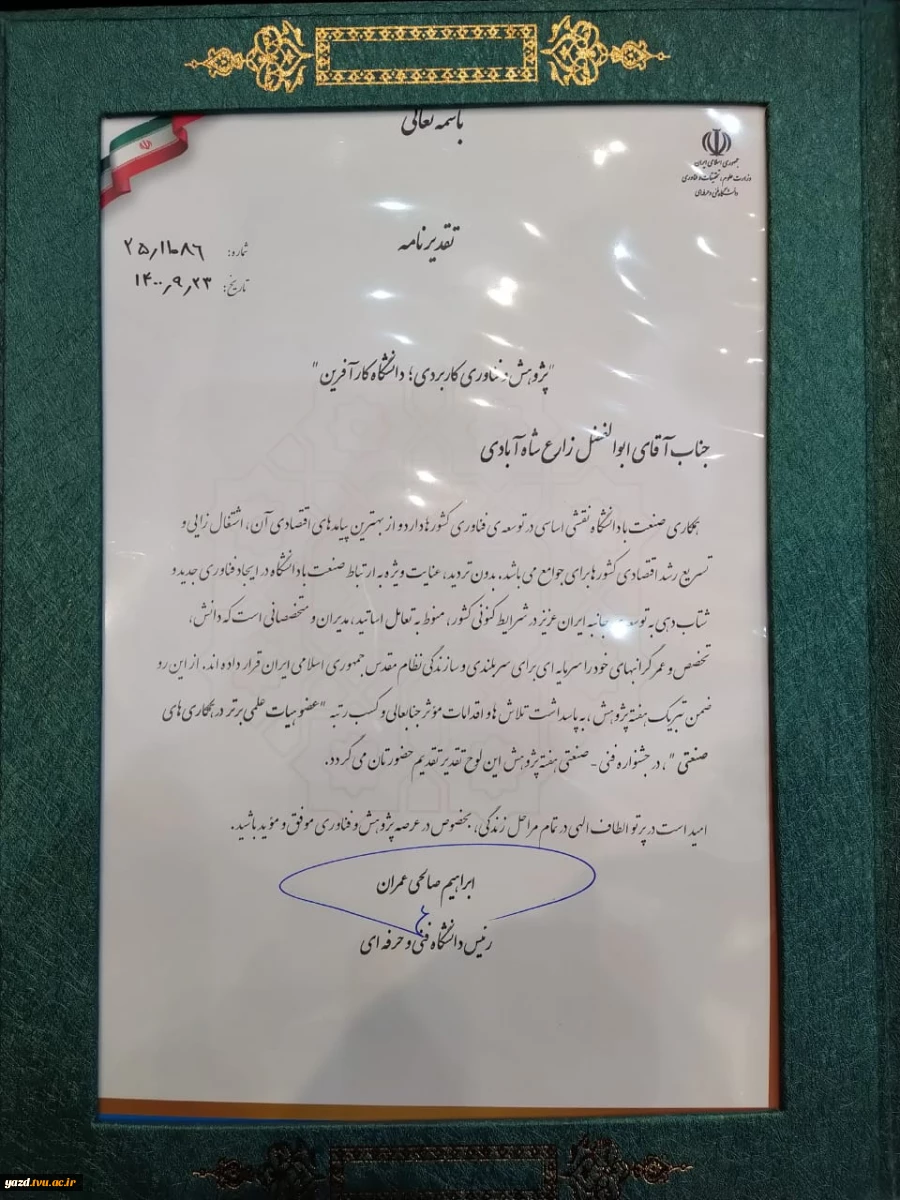 باسمه تعالی
جمهوری اسلامی ایران
وزارت علوم، تحقیقات و فناوری
دانشگاه فنی و حرفه‌ای
تقدیرنامه
شماره:
تاریخ: ۱۴۰۰٫۹٫۲۳
"پژوهش و فناوری کاربردی؛ دانشگاه کارآفرین"
جناب آقای ابوالفضل زارع شاه آبادی
همکاری صنعت با دانشگاه نقشی اساسی در توسعه ی فناوری کشورها دارد و از بهترین پیامدهای اقتصادی آن، اشتغال زایی و
تسریع رشد اقتصادی کشورها برای جوامع می باشد. بدون تردید، عنایت ویژه به ارتباط صنعت با دانشگاه در ایجاد فناوری جدید و
شتاب دهی به توسعه جانبه ایران عزیز در شرایط کنونی کشور، منوط به تعامل اساتید، مدیران و متخصصانی است که دانش،
تخصص و عمر گرانبهای خود را سرمایه ای برای سربلندی و سازندگی نظام مقدس جمهوری اسلامی ایران قرار داده اند. از این رو
ضمن تبریک هفته پژوهش، به پاسداشت تلاش ها و اقدامات مؤثر جنابعالی و کسب رتبه "عضو هیات علمی برتر در همکاری های
صنعتی"، در جشنواره فنی - صنعتی هفته پژوهش این لوح تقدیر تقدیم حضورتان می گردد.
امید است در پرتو الطاف الهی در تمام مراحل زندگی، بخصوص در عرصه پژوهش و فناوری موفق و مؤید باشید.
ابراهیم صالحی عمران
رئیس دانشگاه فنی و حرفه ای
yazd.tvu.ac.ir